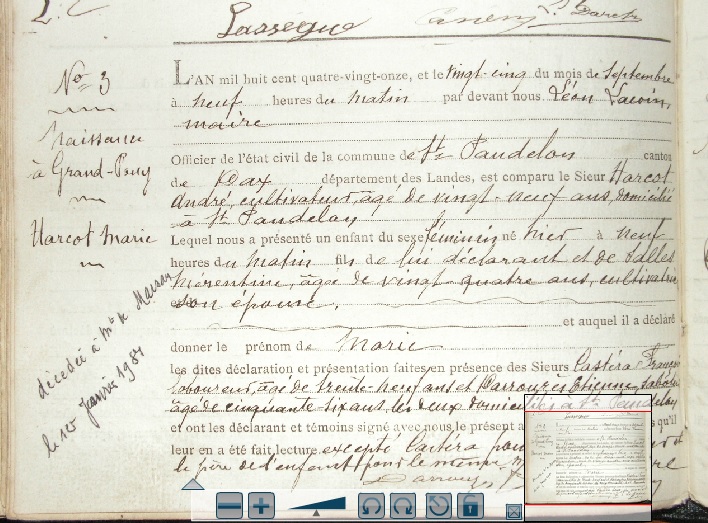 Lassegue
No 3
Naissance
à Grand-Pouy
Harcot Marie
décédée à Mt de Marsan
le 1er Janvier 1981
L'AN mil huit cent quatre-vingt-onze, et le vingt-cinq du mois de Septembre
à neuf heures du matin par devant nous Léon
maire
Officier de l'état civil de la commune de St Pandelon canton
de Dax département des Landes, est comparu le Sieur Harcot
André, cultivateur, âgé de vingt-neuf ans, domicilié
à St Pandelon
Lequel nous a présenté un enfant du sexe féminin né hier à neuf
heures du matin fils de lui déclarant et de
âgée de vingt quatre ans, cultivatrice
son épouse,
et auquel il a déclaré
donner le prénom de Marie
les dites déclaration et présentation faites en présence des Sieurs Castéra
laboureur, âgé de trente-neuf ans et Etienne,
âgé de cinquante six ans, les deux domiciliés à St Pandelon
et ont les déclarant et témoins signé avec nous le présent a qu'il
leur en a été fait lecture, excepté Castéra pour
le père de l'enfant pour le même